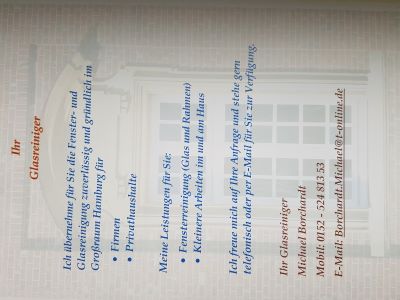 Ihr
Glasreiniger
Ich übernehme für Sie die Fenster- und
Glasreinigung zuverlässig und gründlich im
Großraum Hamburg für
• Firmen
• Privathaushalte
Meine Leistungen für Sie:
• Fensterreinigung (Glas und Rahmen)
• Kleinere Arbeiten im und am Haus
Ich freue mich auf Ihre Anfrage und stehe gern
telefonisch oder per E-Mail für Sie zur Verfügung.
Ihr Glasreiniger
Michael Borchardt
Mobil: 0152 - 524 813 53
E-Mail: Borchardt.Michael@t-online.de